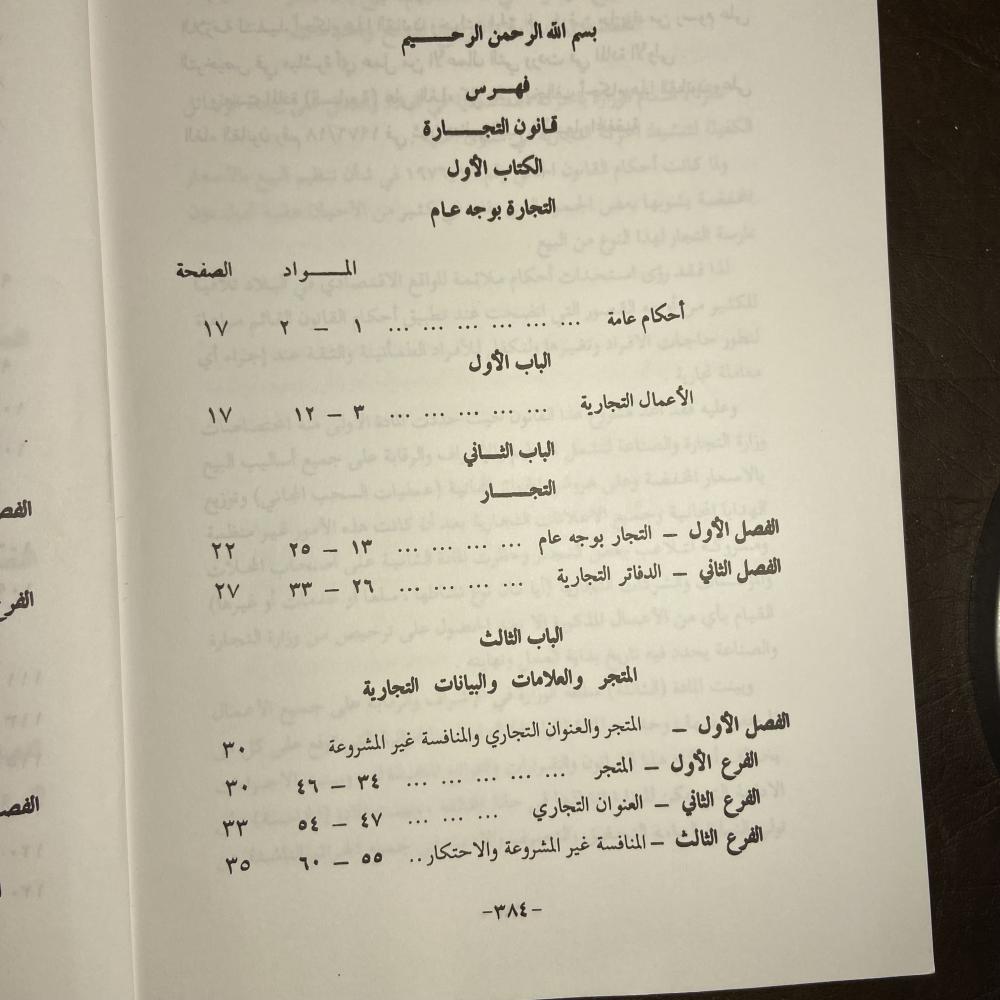 بسم الله الرحمن الرحيم
فهرس
قانون التجارة
الكتاب الأول
التجارة بوجه عام
المواد الصفحة
أحكام عامة ... ... ... ... ... ... ١ – ٢ ١٧
الباب الأول
الأعمال التجارية ... ... ... ... ... ٣ – ١٢ ١٧
الباب الثاني
التجار
الفصل الأول – التجار بوجه عام ... ... ... ... ١٣ – ٢٥ ٢٢
الفصل الثاني – الدفاتر التجارية ... ... ... ... ٢٦ – ٣٣ ٢٧
الباب الثالث
المتجر والعلامات والبيانات التجارية
الفصل الأول – المتجر والعنوان التجاري والمنافسة غير المشروعة ٣٠
الفرع الأول – المتجر ... ... ... ... ... ٣٤ – ٤٦ ٣٠
الفرع الثاني – العنوان التجاري ... ... ... ٤٧ – ٥٤ ٣٣
الفرع الثالث – المنافسة غير المشروعة والاحتكار .. ٥٥ – ٦٠ ٣٥
-٣٨٤-